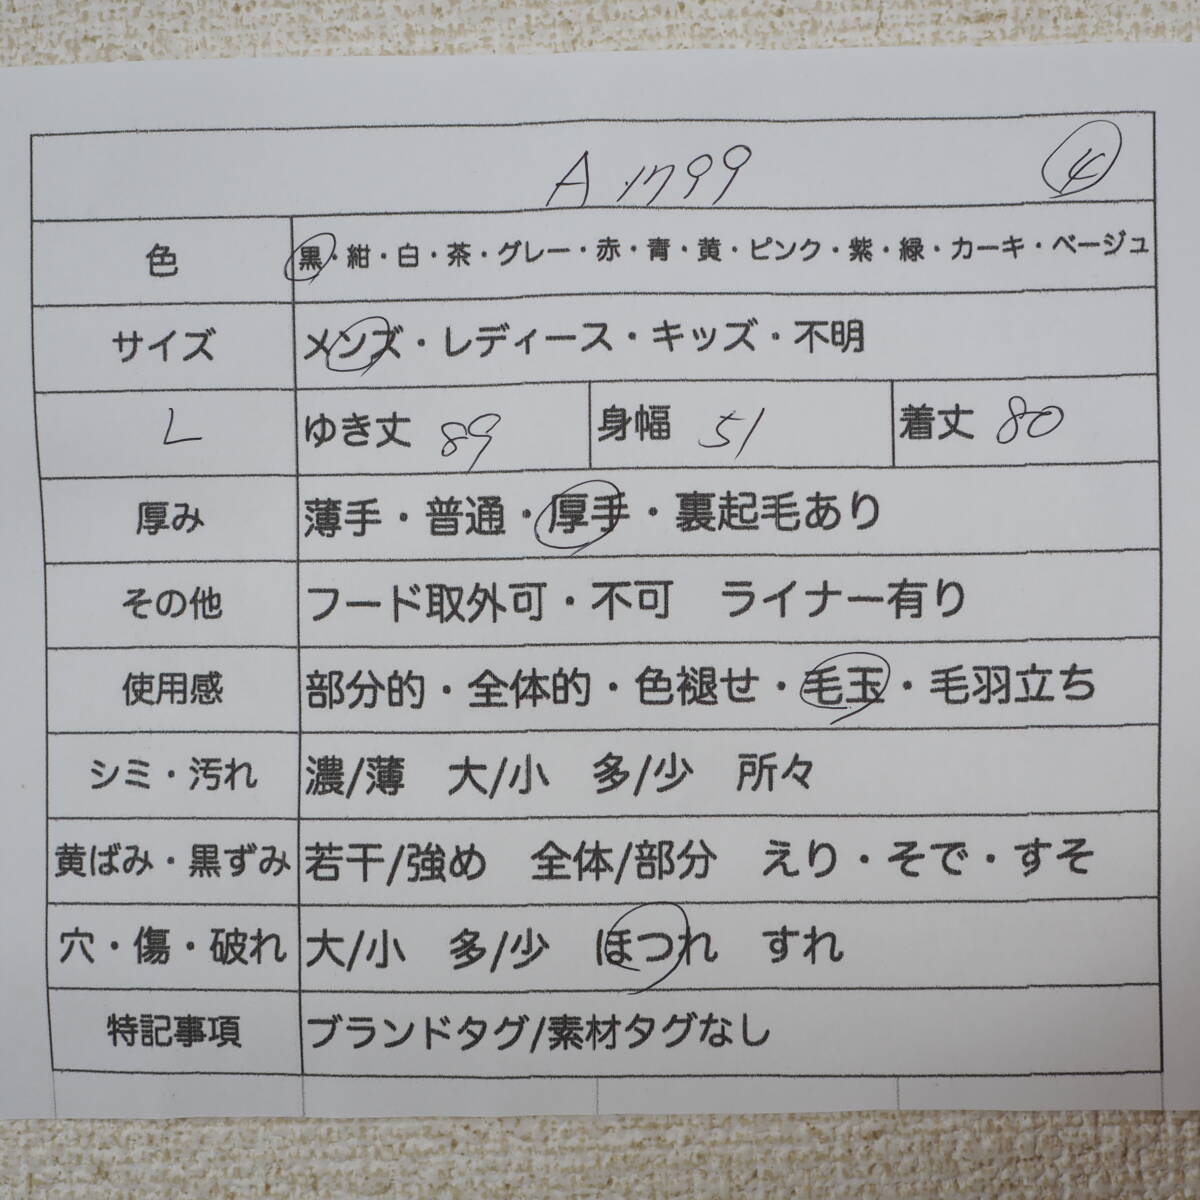 A 1799 4
色 黒・紺・白・茶・グレー・赤・青・黄・ピンク・紫・緑・カーキ・ベージュ
サイズ メンズ・レディース・キッズ・不明
L ゆき丈 89 身幅 51 着丈 80
厚み 薄手・普通・厚手・裏起毛あり
その他 フード取外可・不可 ライナー有り
使用感 部分的・全体的・色褪せ・毛玉・毛羽立ち
シミ・汚れ 濃/薄 大/小 多/少 所々
黄ばみ・黒ずみ 若干/強め 全体/部分 えり・そで・すそ
穴・傷・破れ 大/小 多/少 ほつれ すれ
特記事項 ブランドタグ/素材タグなし